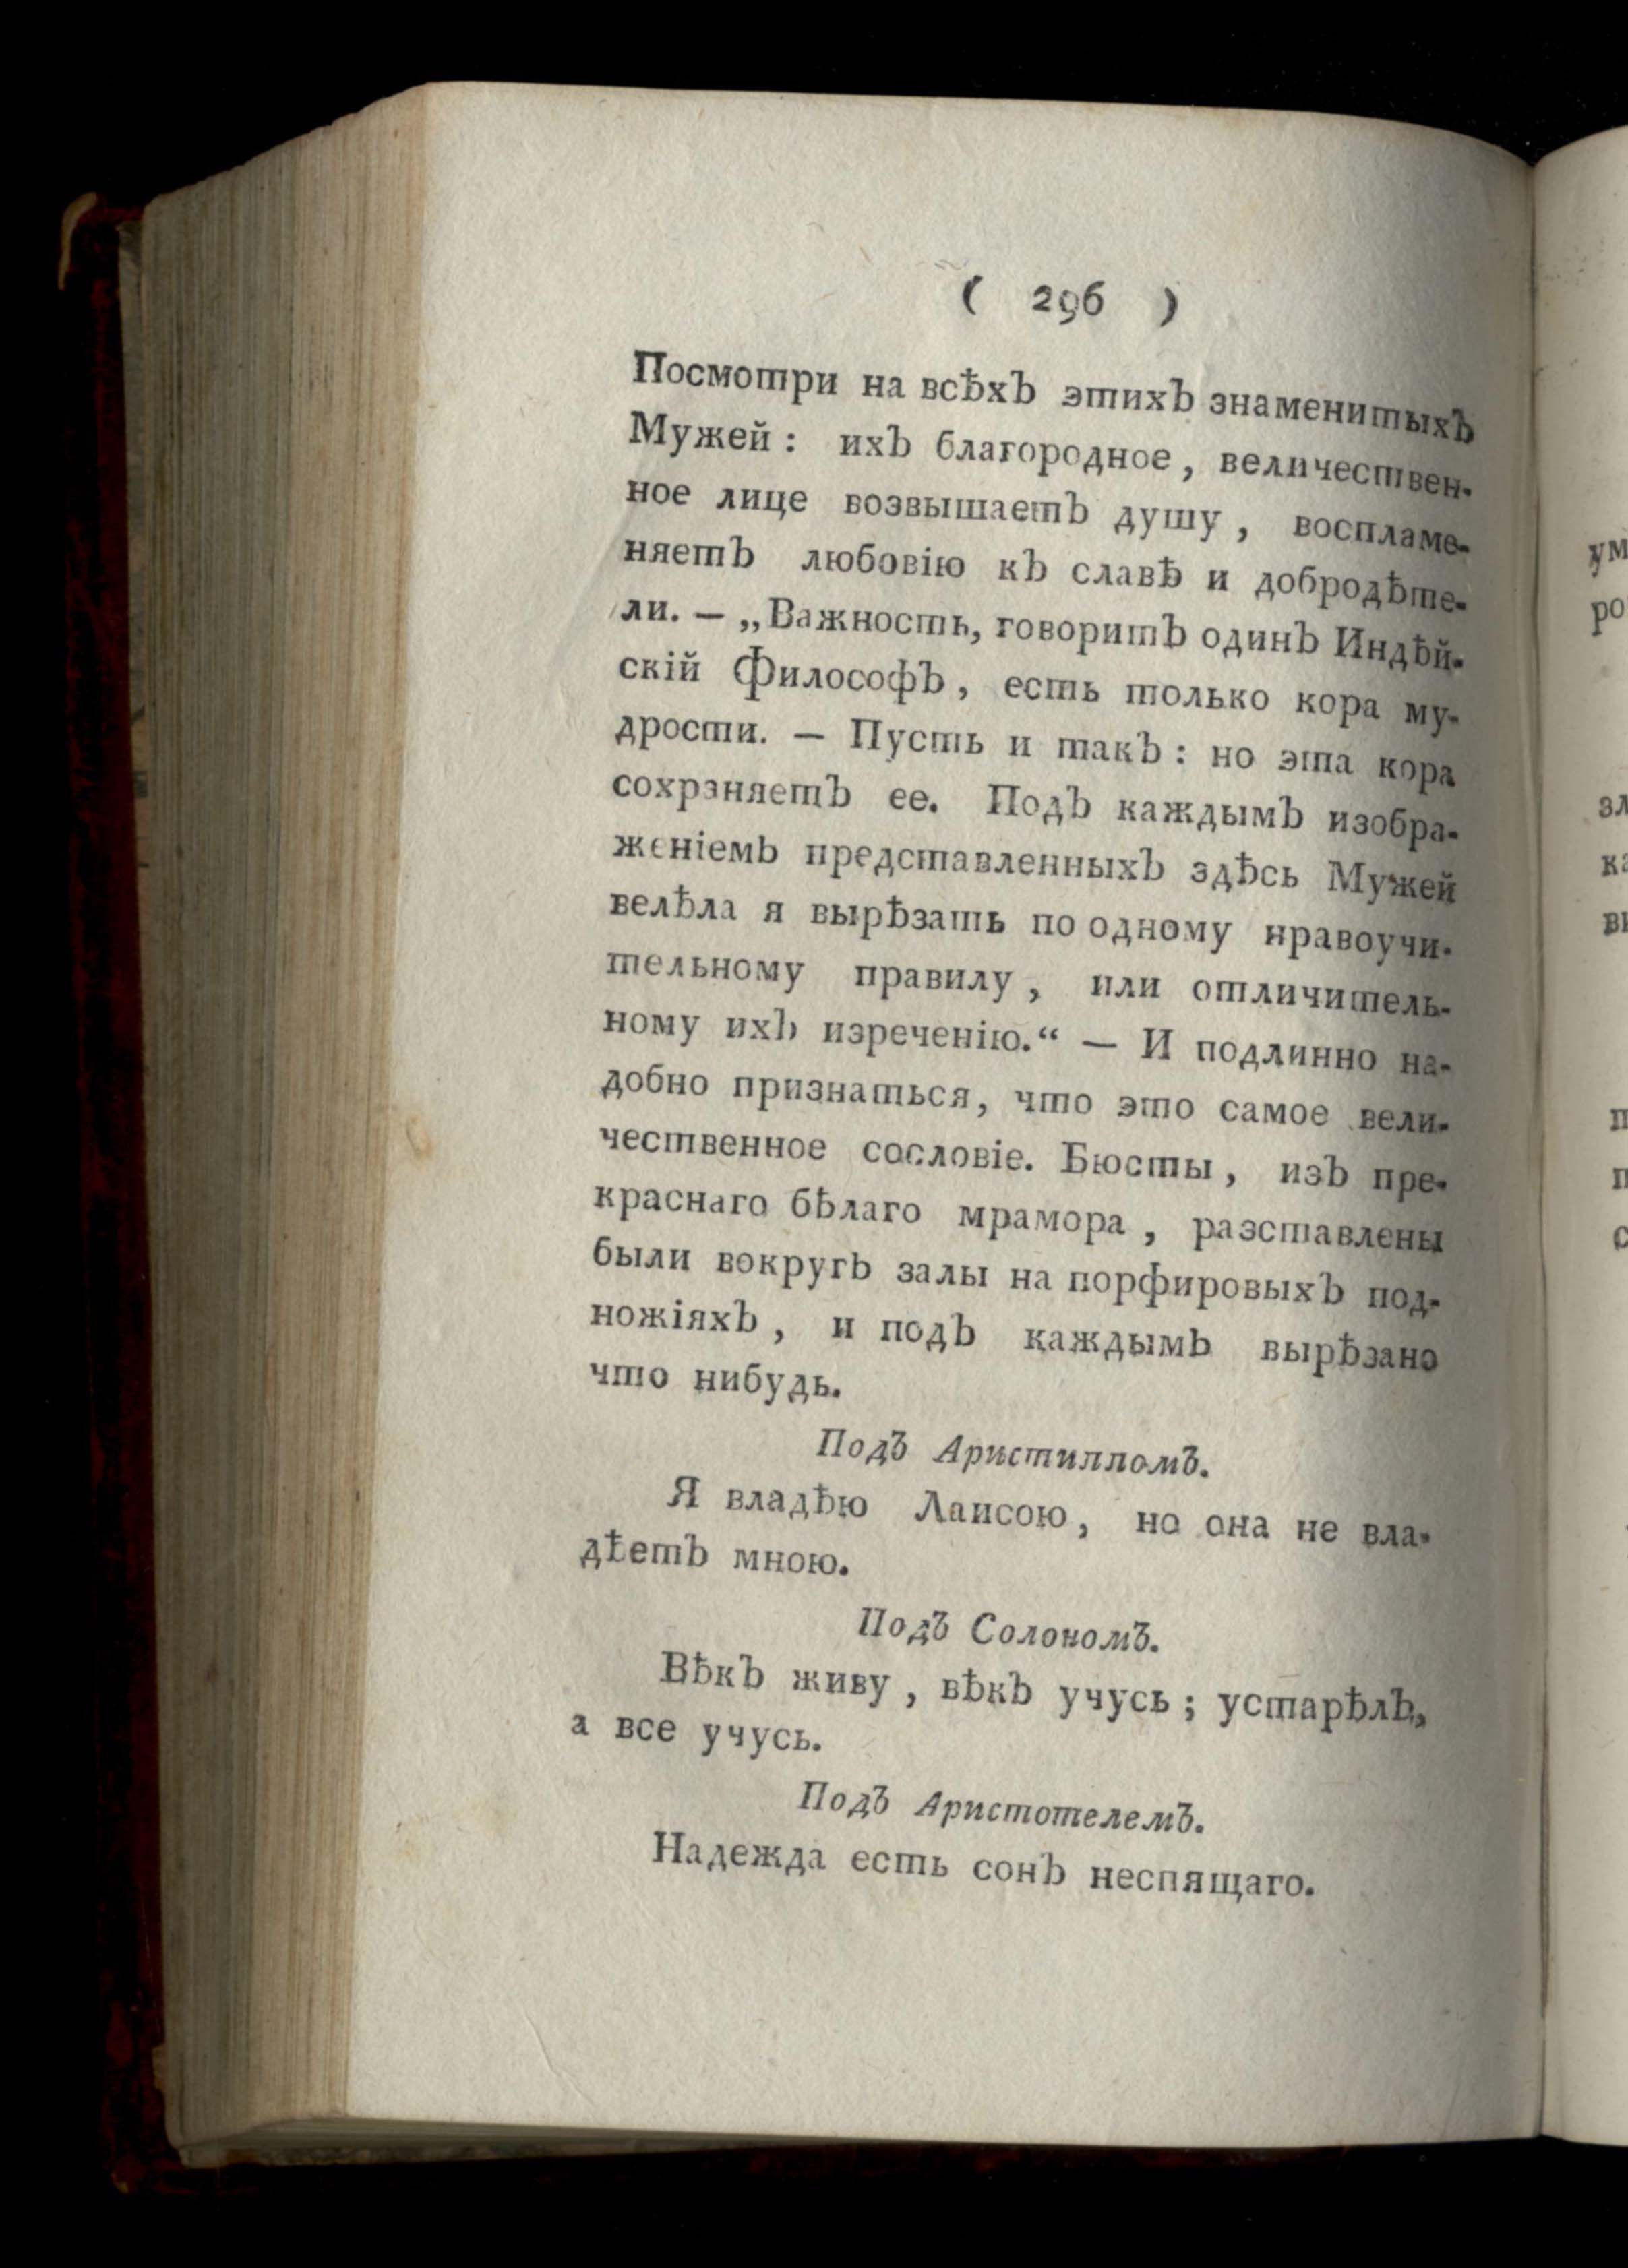 ( 296 )
Посмотри на всѣхъ этихъ знаменитыхъ
Мужей: ихъ благородное, величествен-
ное лице возвышаетъ душу, воспламе-
няетъ любовію къ славѣ и добродѣте-
ли. — „Важность, говоритъ одинъ Индѣй-
скій Философъ, есть только кора му-
дрости. — Пусть и такъ: но эта кора
сохраняетъ ее. Подъ каждымъ изобра-
женіемъ представленныхъ здѣсь Мужей
велѣла я вырѣзать по одному нравоучи-
тельному правилу, или отличитель-
ному ихъ изреченію.“ — И подлинно на-
добно признаться, что это самое вели-
чественное сословіе. Бюсты, изъ пре-
краснаго бѣлаго мрамора, разставлены
были вокругъ залы на порфировыхъ под-
ножіяхъ, и подъ каждымъ вырѣзано
что нибудь.
Подъ Аристиппомъ.
Я владѣю Лаисою, но она не вла-
дѣетъ мною.
Подъ Солономъ.
Вѣкъ живу, вѣкъ учусь; устарѣлъ,
а все учусь.
Подъ Аристотелемъ.
Надежда есть сонъ неспящаго.
ум
ро
зл
ка
ви
п
п
с